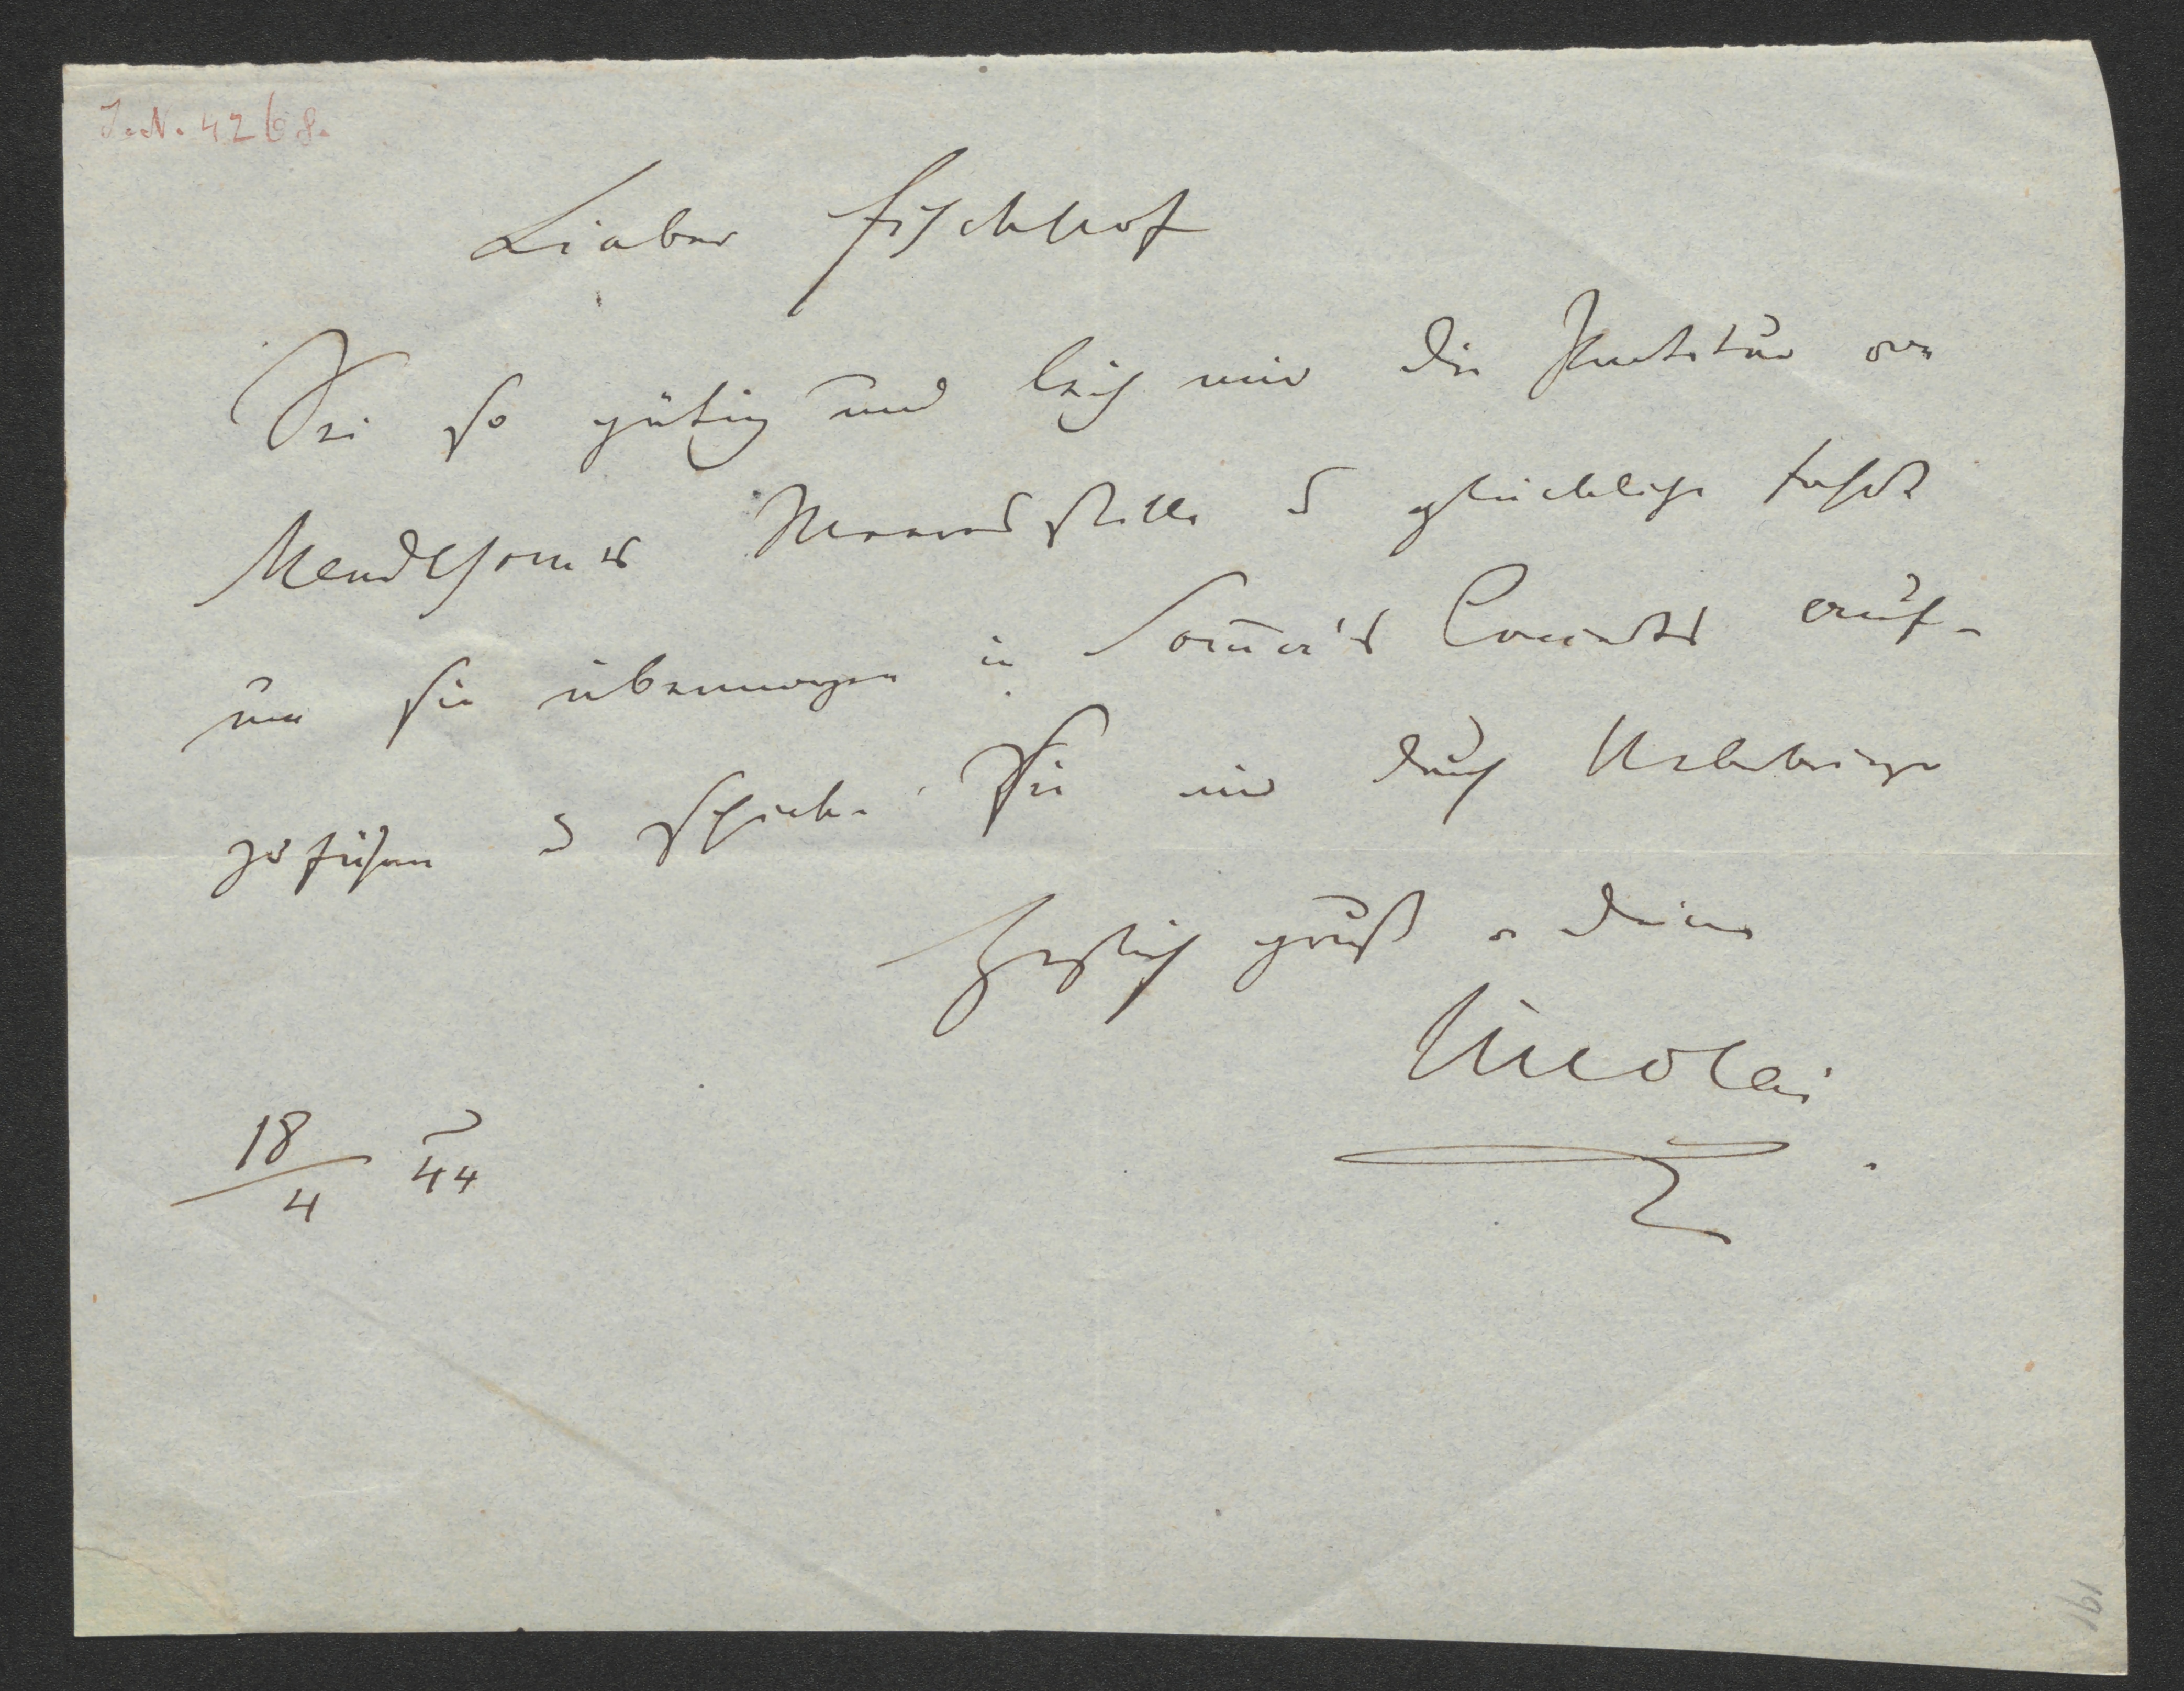 I.N. 4268.
Lieber Fischhof
Sei so gütig und leih mir die Partitur von
Mendelsohns Meeresstille u glückliche Fahrt
um sie übermorgen in Som̅er's Concerte auf-
zuführen u schicke sie mir durch Ueberbringer
Herzlich grüßt Deine
Nicolai
18/4 44
191